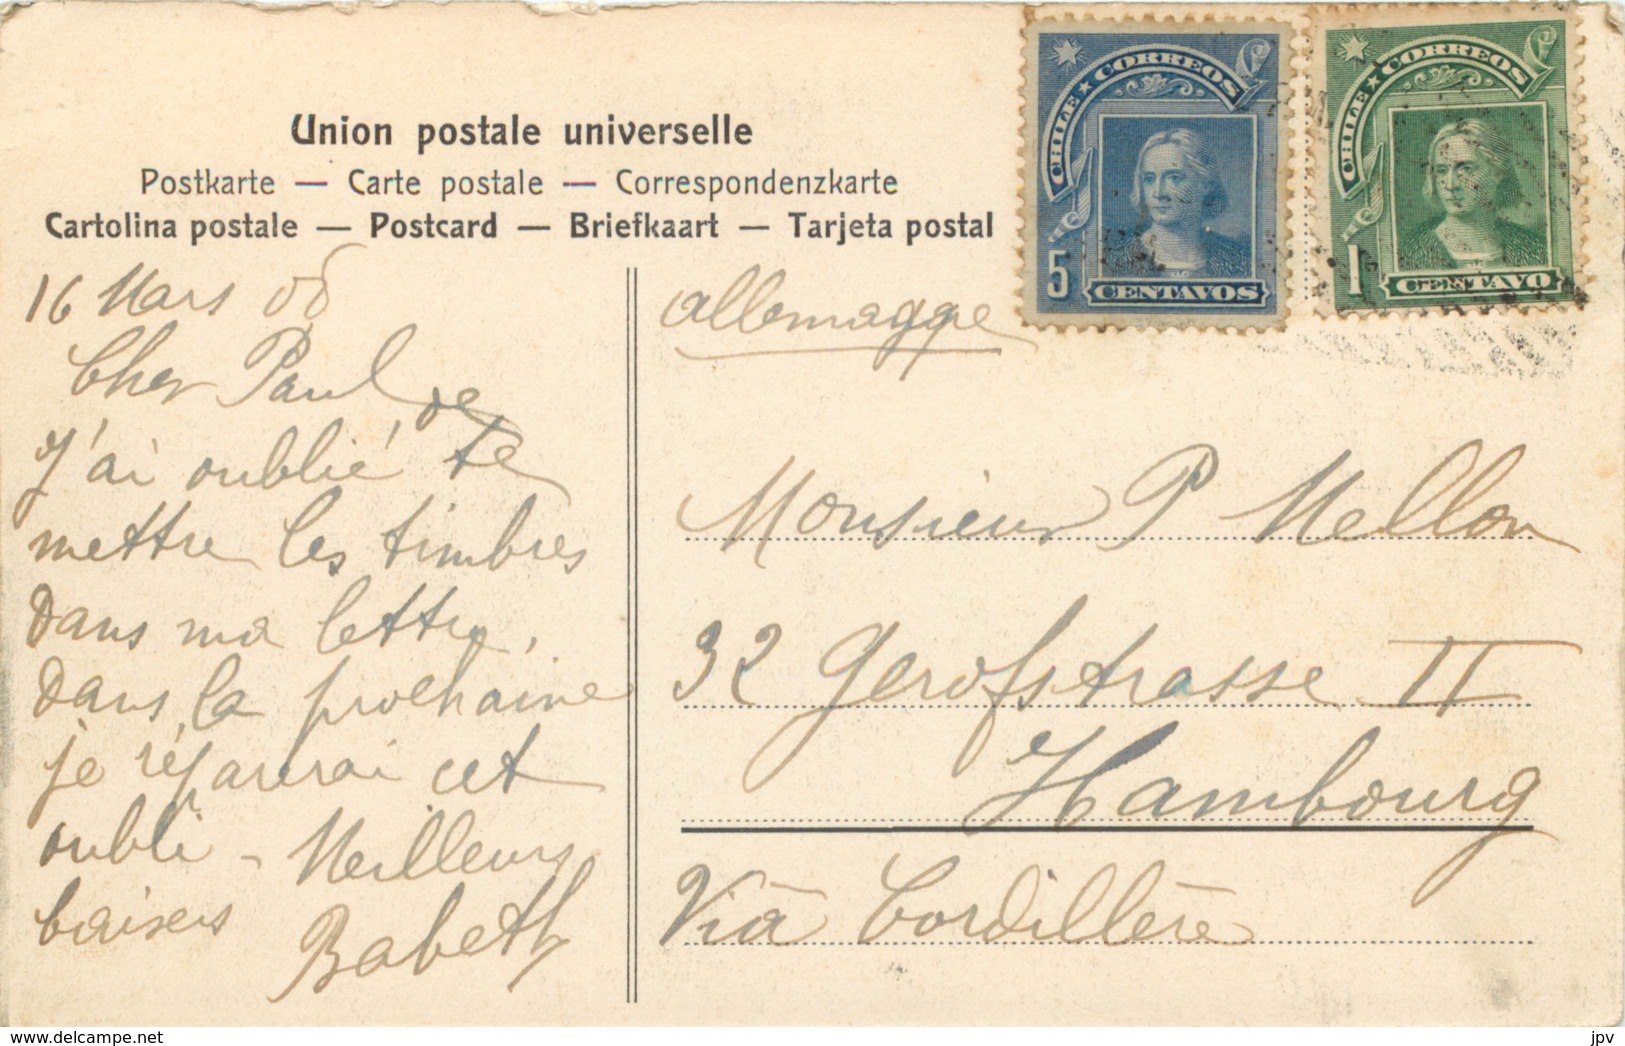 Union postale universelle
Postkarte — Carte postale — Correspondenzkarte
Cartolina postale — Postcard — Briefkaart — Tarjeta postal
CHILE ★ CORREOS
5 CENTAVOS
CHILE ★ CORREOS
1 CENTAVO
16 Mars 06
Cher Paul
J'ai oublié de te
mettre les timbres
dans ma lettre,
dans la prochaine
je réparerai cet
oubli - Meilleurs
baisers Babeth
allemagge
Monsieur P Mellon
32 Gerofstrasse II
Hambourg
Viâ Cordillère
www.delcampe.net
jpv